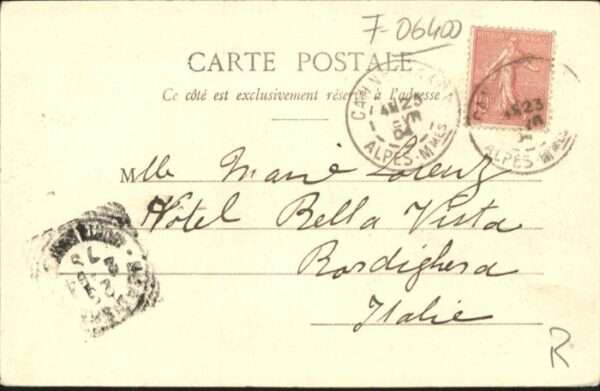 7-06400
CARTE POSTALE
Ce côté est exclusivement réservé à l'adresse
CANNES
23
04
ALPES-MMES
23
ALPES-MMES
Mlle Marie Lorenz
Hôtel Bella Vista
Bordighera
Italie
R